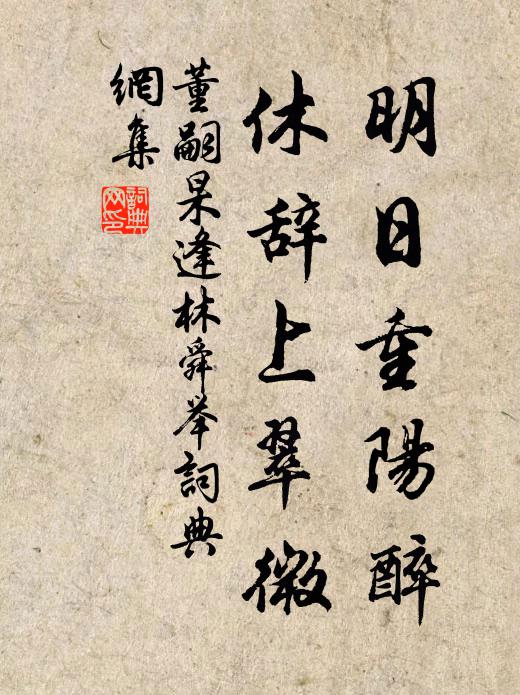 明日重陽醉
休辞上翠微
董嗣杲逢林舜举詞典
網集
詞典網印